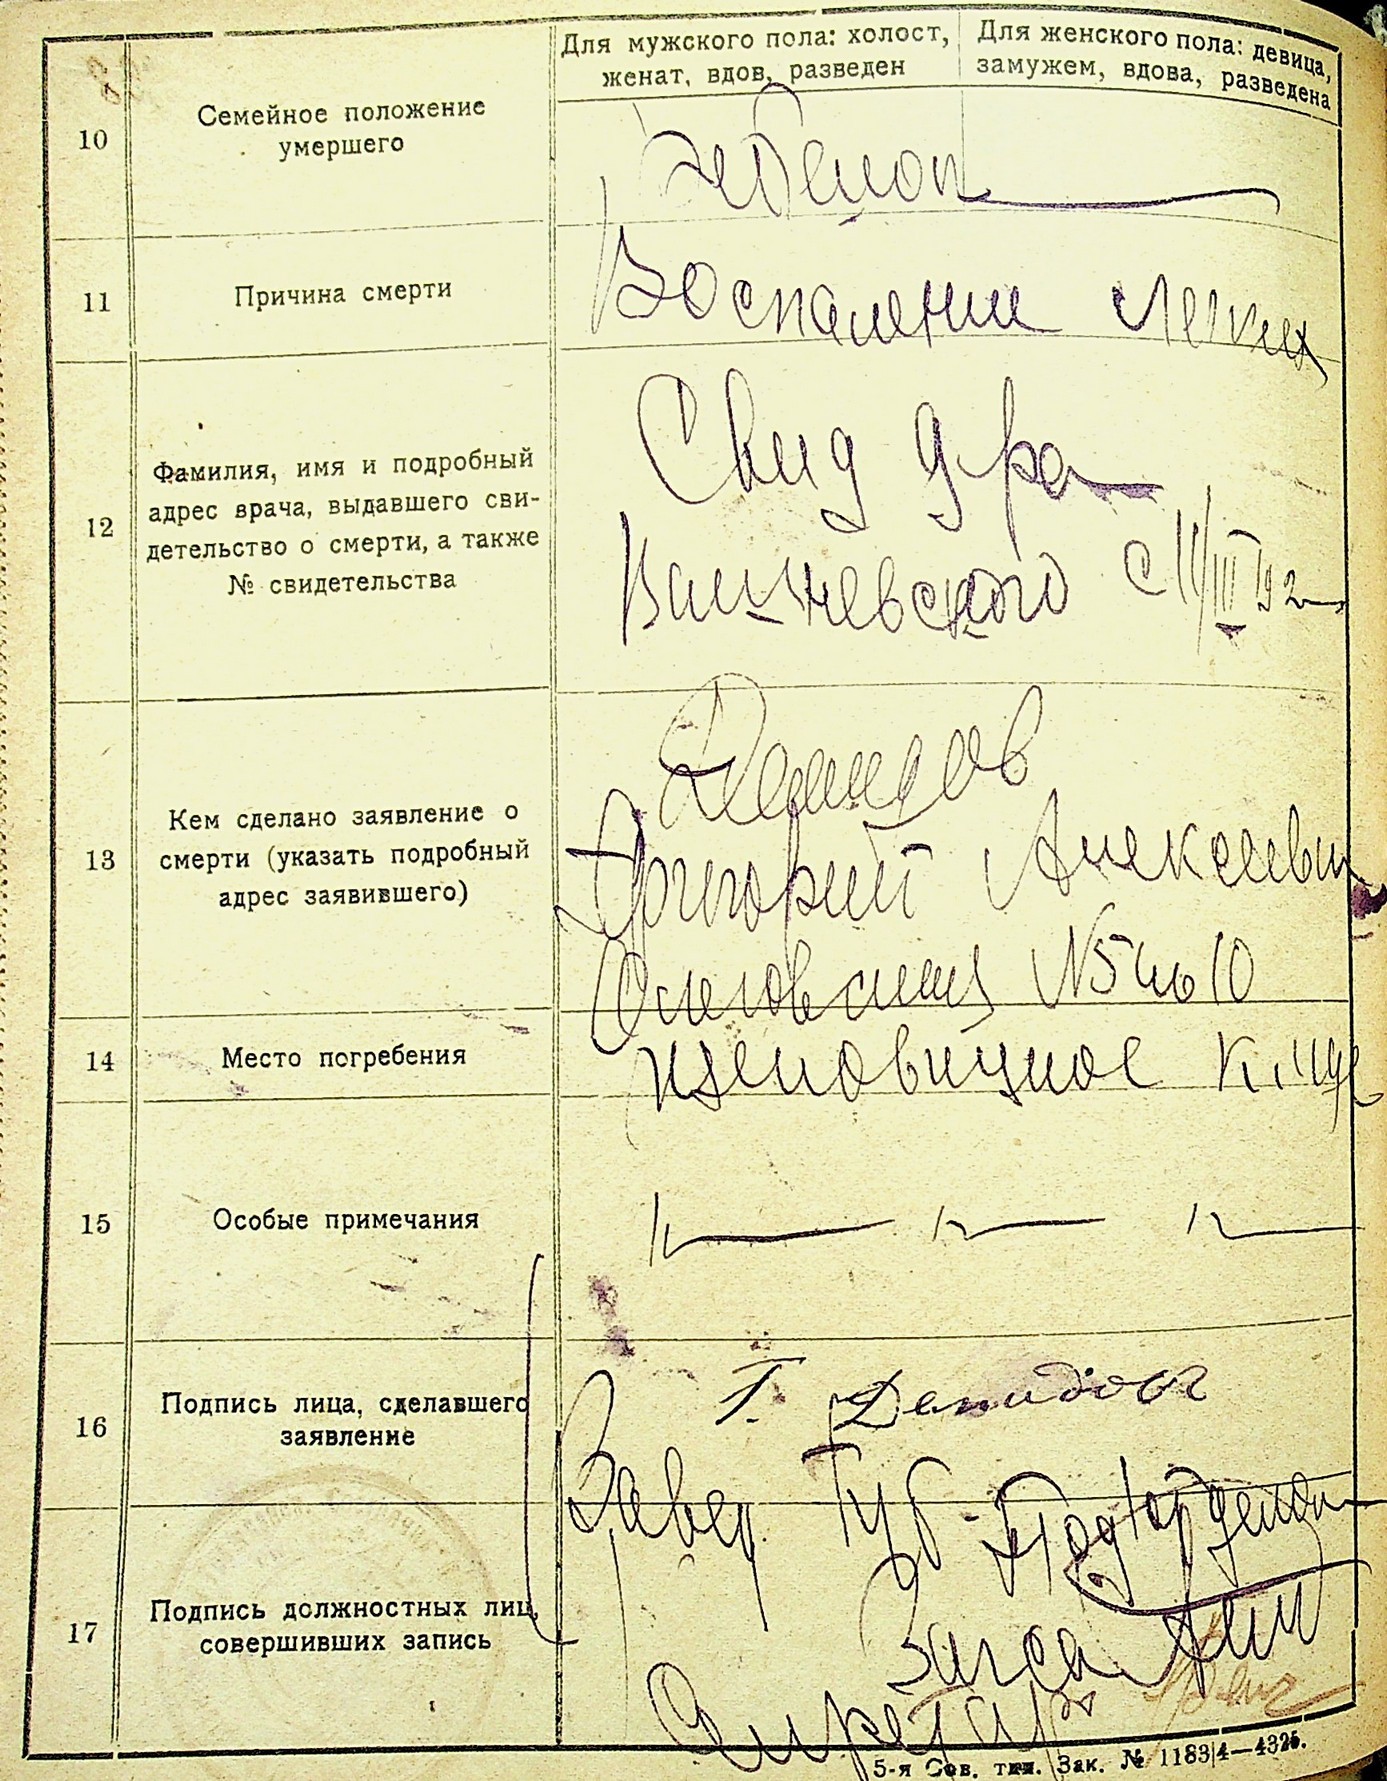 Для мужского пола: холост,
женат, вдов, разведен
Для женского пола: девица,
замужем, вдова, разведена
10
Семейное положение
умершего
ребенок
11
Причина смерти
Воспаление легких
12
Фамилия, имя и подробный
адрес врача, выдавшего сви-
детельство о смерти, а также
№ свидетельства
Свид д-ра
Вишневского с 11/III 192
13
Кем сделано заявление о
смерти (указать подробный
адрес заявившего)
Демидов
Григорий Алексеевич
№ 5 10
14
Место погребения
15
Особые примечания
16
Подпись лица, сделавшего
заявление
Г. Демидов
17
Подпись должностных лиц,
совершивших запись
Завед. Губ. Подотделом
Загса
Секретарь
5-я Сов. тип. Зак. № 1183|4—4325.